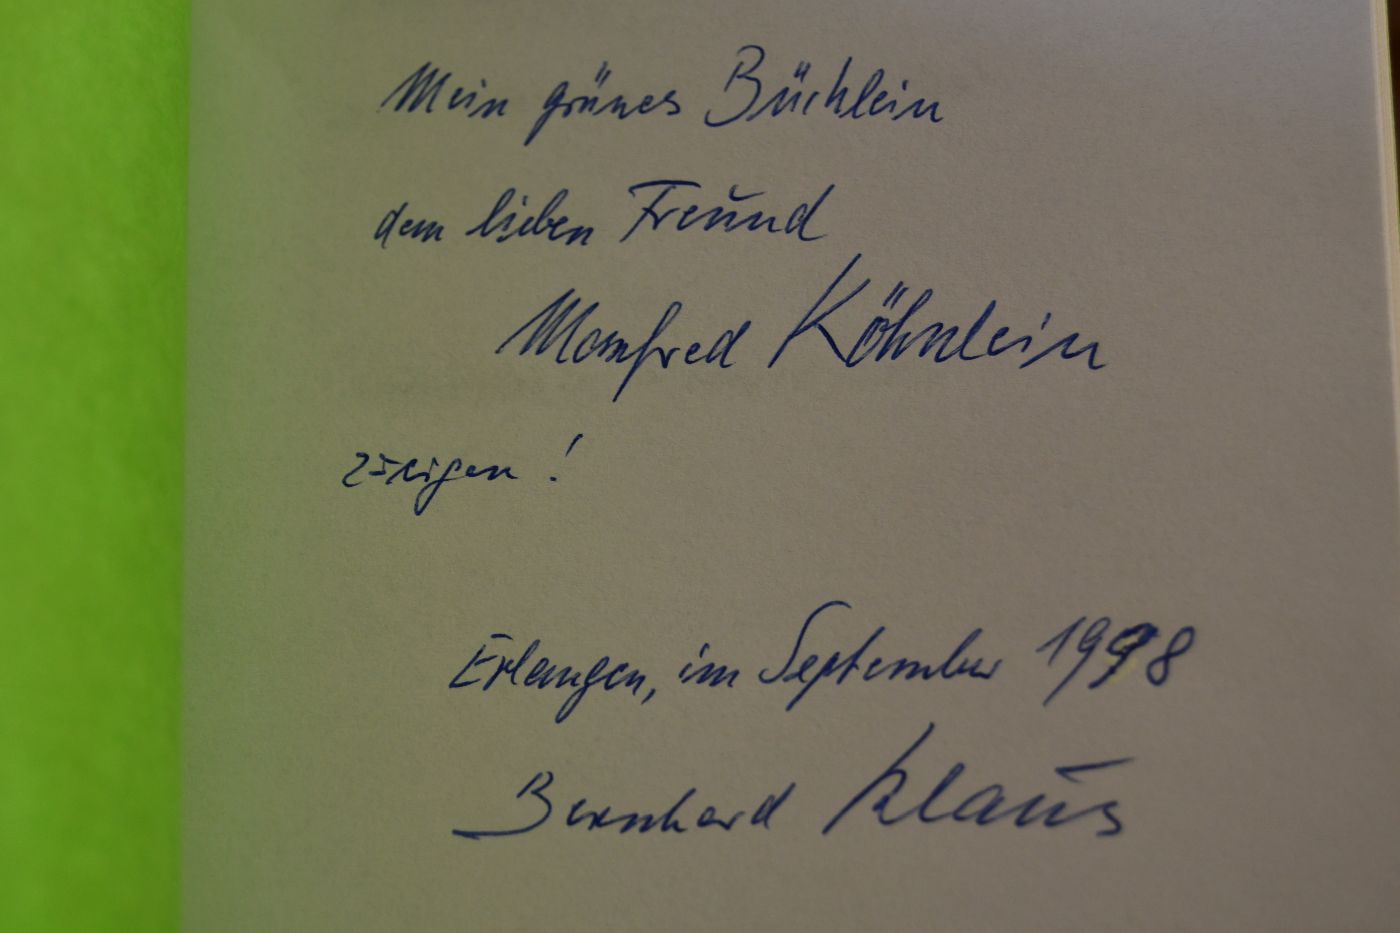 Mein grünes Büchlein
dem lieben Freund
Manfred Köhnlein
zu eigen!
Erlangen, im September 1998
Bernhard Klaus